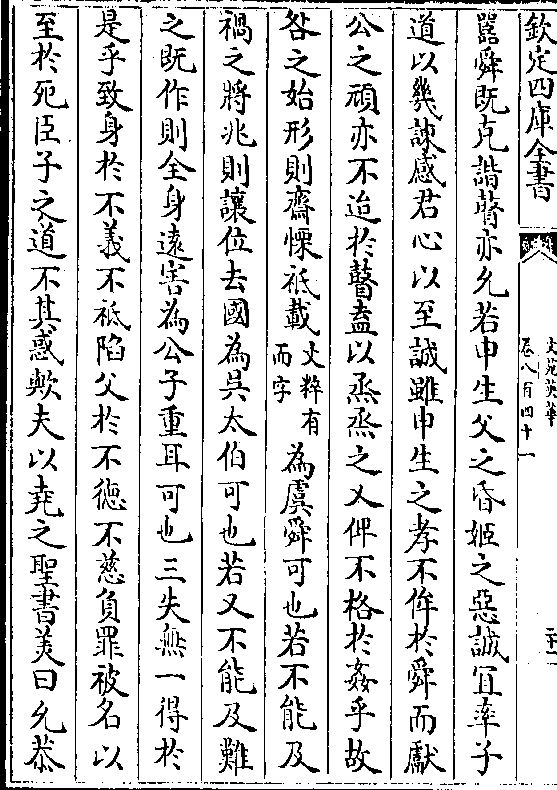 欽定四庫全書
文苑英華
卷八百四十一
嚚舜既克諧瞽亦允若申生父之昏姬之惡誠宜率子
道以幾諫感君心以至誠雖申生之孝不侔於舜而獻
公之頑亦不迨於瞽盍以烝烝之乂俾不格於姦乎故
咎之始形則齋慄祗載文粹有而字為虞舜可也若不能及
禍之將兆則讓位去國為吳太伯可也若又不能及難
之既作則全身遠害為公子重耳可也三失無一得於
是乎致身於不義不祗陷父於不德不慈負罪被名以
至於死臣子之道不其惑歟夫以堯之聖書美曰允恭